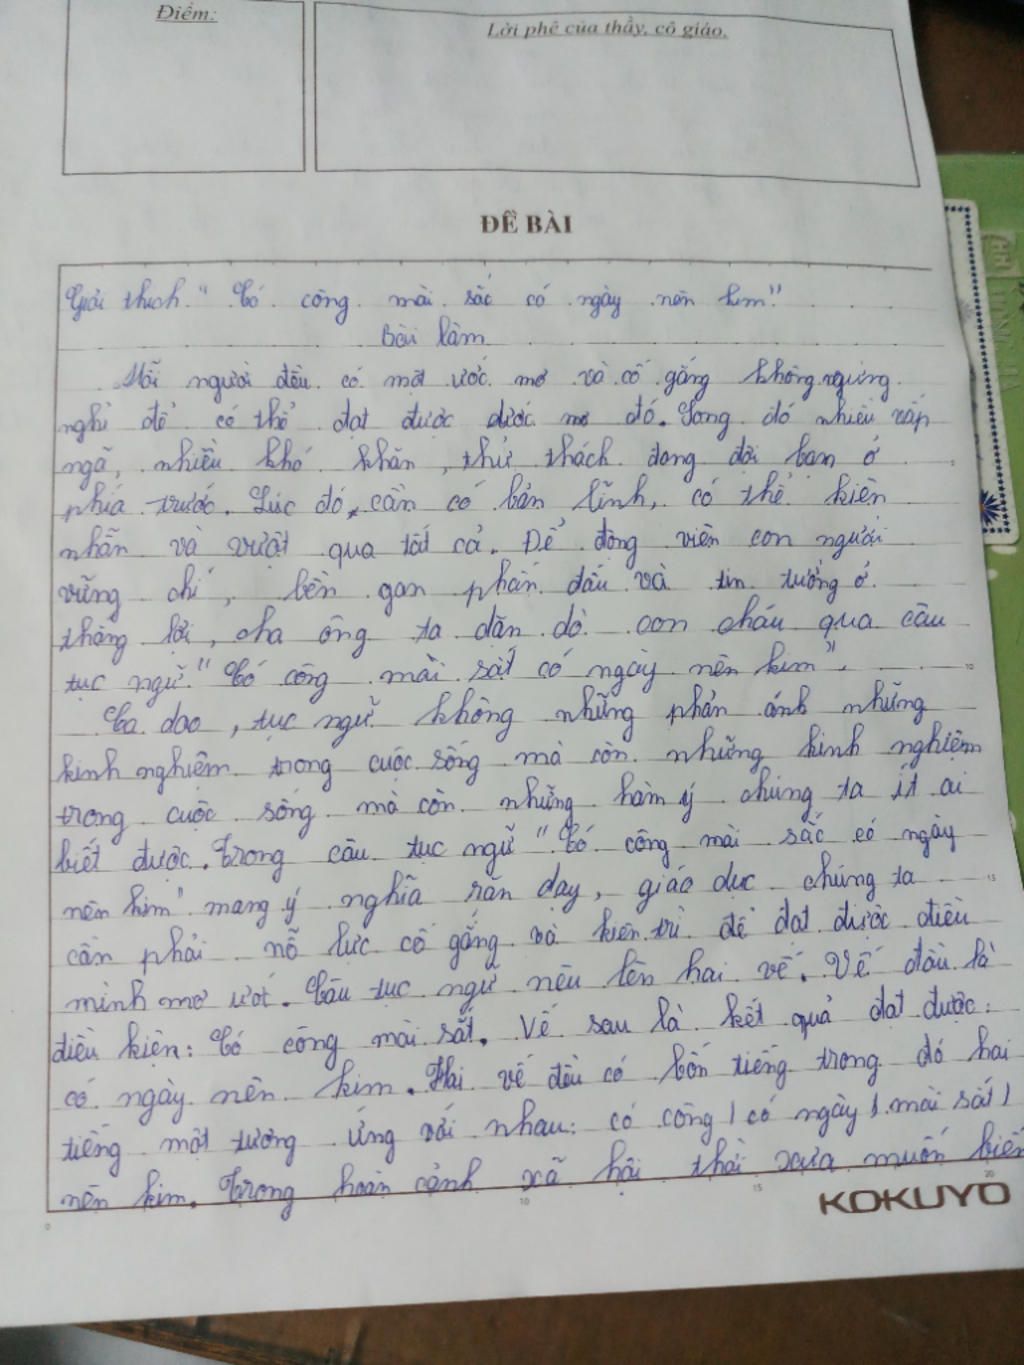 Điểm:
Lời phê của thầy, cô giáo.
ĐỀ BÀI
Giải thích " Có công mài sắc có ngày nên kim"
Bài làm
Mỗi người đều có một ước mơ và cố gắng không ngừng
nghỉ để có thể đạt được được mơ đó. Song đó nhiều vấp
ngã, nhiều khó khăn, thử thách đang đợi bạn ở
phía trước. Lúc đó, cần có bản lĩnh, có thể kiên
nhẫn và vượt qua tất cả. Để động viên con người
vững chí, bền gan phấn đấu và tin tưởng ở
thắng lợi, cha ông ta dặn dò con cháu qua câu
tục ngữ "Có công mài sắt có ngày nên kim".
Ca dao, tục ngữ không những phản ánh những
kinh nghiệm trong cuộc sống mà còn những kinh nghiệm
trong cuộc sống mà còn những hàm ý chúng ta ít ai
biết được. Trong câu tục ngữ "Có công mài sắc có ngày
nên kim" mang ý nghĩa răn dạy, giáo dục chúng ta
cần phải nỗ lực cố gắng và kiên trì để đạt được điều
mình mơ ước. Câu tục ngữ nêu lên hai vế. Vế đầu là
điều kiện: Có công mài sắt. Vế sau là kết quả đạt được:
có ngày nên kim. Hai vế đều có bốn tiếng trong đó hai
tiếng một tương ứng với nhau: có công / có ngày / mài sắt /
nên kim. Trong hoàn cảnh xã hội thời xưa muốn
KOKUYO